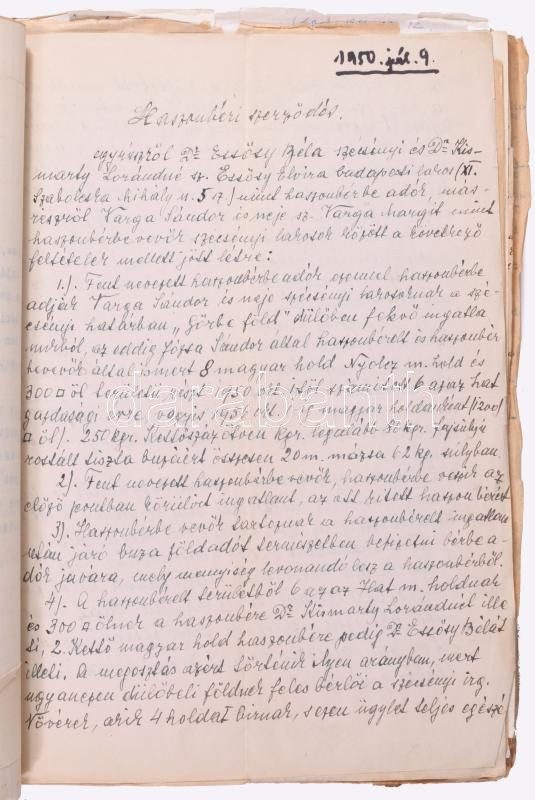 1950. júl. 9.
Haszonbéri szerződés.
egyrészről Dr Essősy Béla szécsényi és Dr Kis-
marty Lorándné sz. Essősy Elvira budapesti lakos (XI.
Szabolcska Mihály u. 5 sz.) mint haszonbérbe adók, más-
részről Varga Sándor és neje sz. Varga Margit mint
haszonbérbe vevők szécsényi lakosok között a következő
feltételek mellett jött létre:
1.) Fent nevezett haszonbérbe adók ezennel haszonbérbe
adják Varga Sándor és neje szécsényi lakosoknak a szé-
csényi határban „Görbe föld" dülőben fekvő ingatla
nukból, az eddig Józsa Sándor által haszonbérelt és haszonbér
bevevők által ismert 8 magyar hold Nyolcz m. hold és
300 □ öl területű részt 1950 okt. 1-től számított 6 azaz hat
gazdasági évre vagyis 1956 okt. magyar holdanként (1200
□ öl). 250 kgr. Kettőszáz ötven kgr. legalább 80 kgr. fajsúlyú
rostált tiszta buzáért összesen 20 m. mázsa 62 kg. súlyban.
2). Fent nevezett haszonbérbe vevők, haszonbérbe veszik az
előző pontban körülírt ingatlant, az ott kitett haszonbérért
3). Haszonbérbe vevők tartoznak a haszonbérelt ingatlan
után járó buza földadót természetben befizetni bérbe a-
dók javára, mely menyiség levonandó lesz a haszonbérből.
4). A haszonbérelt területből 6 azaz Hat m. holdnak
és 300 □ ölnek a haszonbére Dr Kismarty Lorándnét ille
ti, 2. Kettő magyar hold haszonbére pedig Dr Essősy Bélát
illeti. A megosztás azért történik ilyen arányban, mert
ugyanezen dülőbeli földnek feles bérlői a szécsényi irg.
Nővérek, akik 4 holdat birnak, ezen ügylet teljes egészé
darabanth